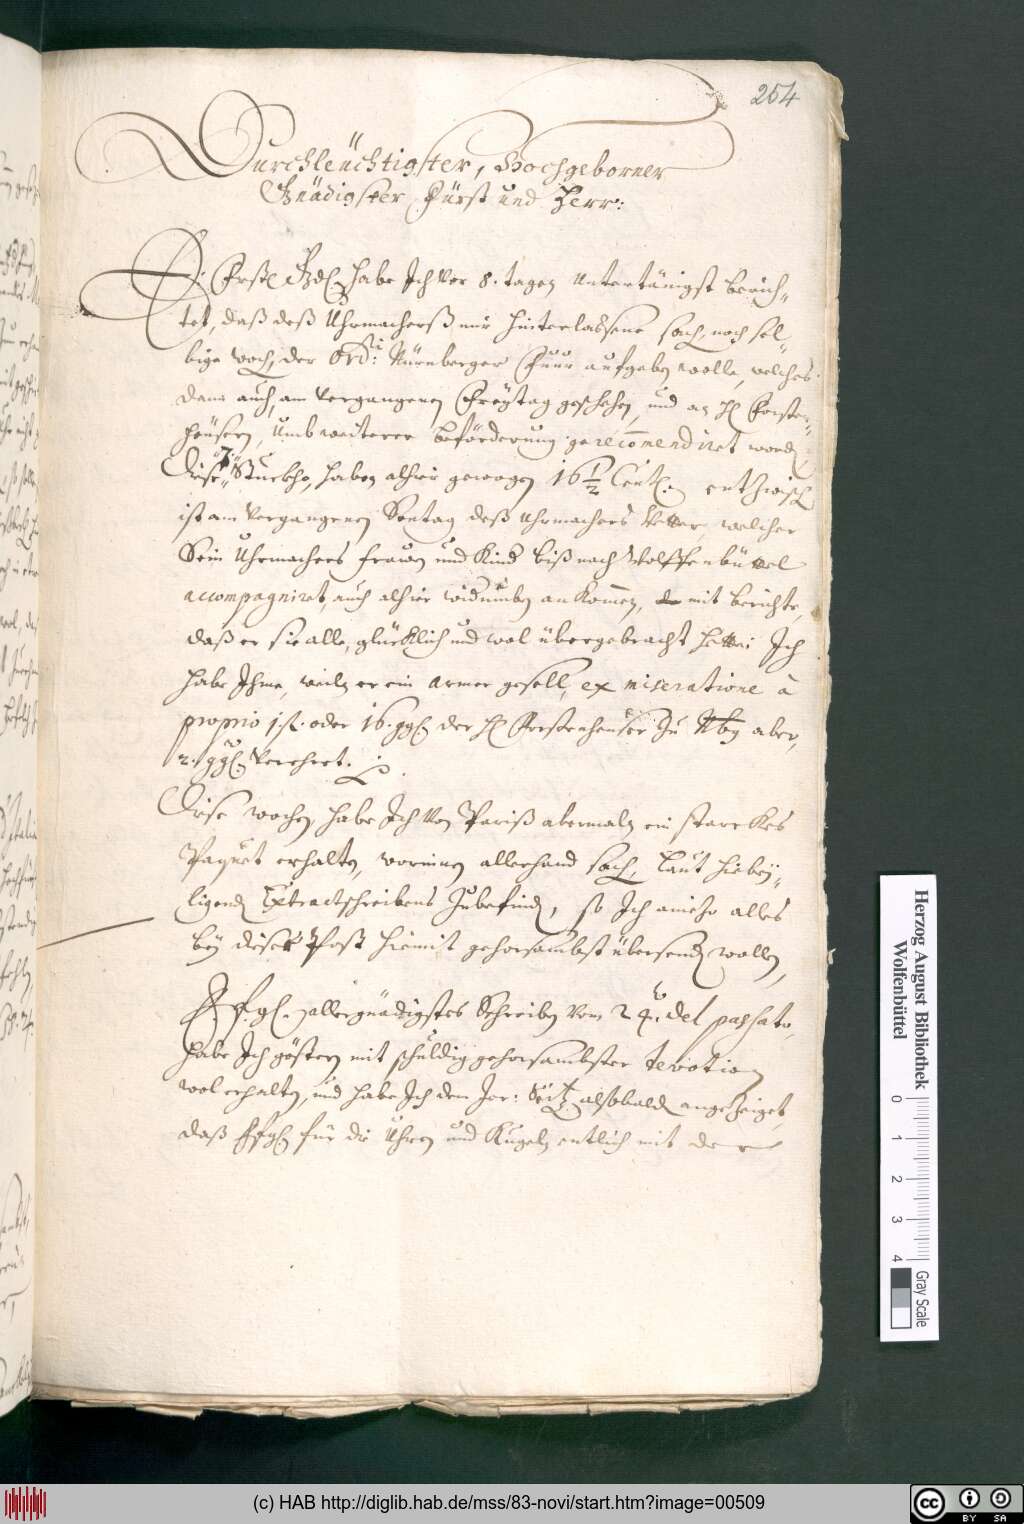 254
Durchleüchtigster, Hochgeborner
Gnädigster Fürst und Herr:
E: Frstl. Gnd. habe Ich vor 8. tagen untertänigst berich-
tet, daß deß Uhrmacherß mir hinterlassene sach, noch sel-
bige woch, der Ordi: Nürnberger Fuur aufgeben wolle, welches
dann auch, am vergangenen Freÿtag geschehen, und an H. Forsten-
heusern, umb weiterer beförderung gerecom̄endiret word.
Dise 7 Stuckho, haben alhier gewogen 16½ Cent. entzwisch
ist am vergangenen Sontag deß Uhrmachers Vetter, welcher
Sein Uhrmachers frawen und Kind biß nach Wolffenbüttel
accompagniret, auch alhier widrumben ankom̄en, mit berichte,
daß er sie alle, glücklich und wol übergebracht hette: Ich
habe Ihme, weiln er ein armer gesell, ex miseratione à
proprio 1.fl. oder 16. ggl. der H. Forstenheuser zu Nbg aber,
2. ggl. verehret.
Dise wochen, habe Ich von Pariß abermaln ein starckes
Paquet erhalten, worinnen allerhand sach, laut hiebeÿ-
ligend Extractschreibens zubefind, so Ich aniezo alles
beÿ diser Post hiemit gehorsambst übersend wollen,
E. f. gl. allergnädigstes Schreiben vom 24. del passato,
habe Ich gestern mit schuldig gehorsambster devotion
wol erhalten, und habe Ich dem Jer: Seitz alsobald angezeiget,
daß E f gl für die Uhren und Kugeln entlich mit der
Herzog August Bibliothek
Wolfenbüttel
0 1 2 3 4
Gray Scale
(c) HAB http://diglib.hab.de/mss/83-novi/start.htm?image=00509
cc BY SA